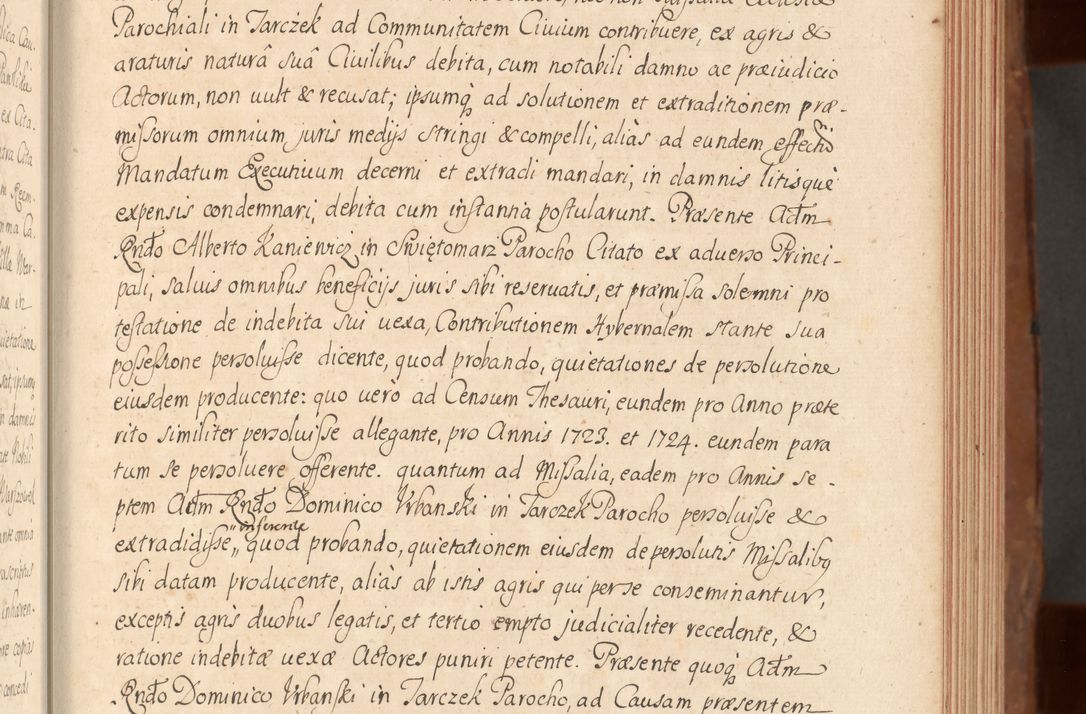 Parochiali in Tarczek ad Communitatem Ciuium contribuere, ex agris &
araturis naturâ suâ Ciuilibus debita, cum notabili damno ac præiudicio
Actorum, non uult & recusat; ipsumq; ad solutionem et extraditionem præ-
missorum omnium juris medijs stringi & compelli, aliàs ad eundem effectū
Mandatum Executiuum decerni et extradi mandari, in damnis litisquè
expensis condemnari, debita cum instantia postularunt. Præsente Adm
Rndo Alberto Kaniewicz in Swiętomarz Parocho Citato ex aduerso Princi-
pali, saluis omnibus beneficijs juris sibi reseruatis, et præmissa solemni pro
testatione de indebita sui uexa, Contributionem Hybernalem stante sua
possessione persoluisse dicente, quod probando, quietationes de persolutione
eiusdem producente: quo uerò ad Censum Thesauri, eundem pro Anno præte
rito similiter persoluisse allegante, pro Annis 1723. et 1724. eundem para
tum se persoluere offerente. quantum ad Missalia, eadem pro Annis se-
ptem Adm Rndo Dominico Vrbanski in Tarczek Parocho persoluisse &
inferente
extradidisse „ quod probando, quietationem eiusdem de persolutis Missalibq
sibi datam producente, aliàs ab istis agris qui per se conseminantur,
exceptis agris duobus legatis, et tertio empto judicialiter recedente, &
ratione indebitæ uexæ Actores puniri petente. Præsente quoq; Adm
Rndo Dominico Vrbanski in Tarczek Parocho, ad Causam præsentem